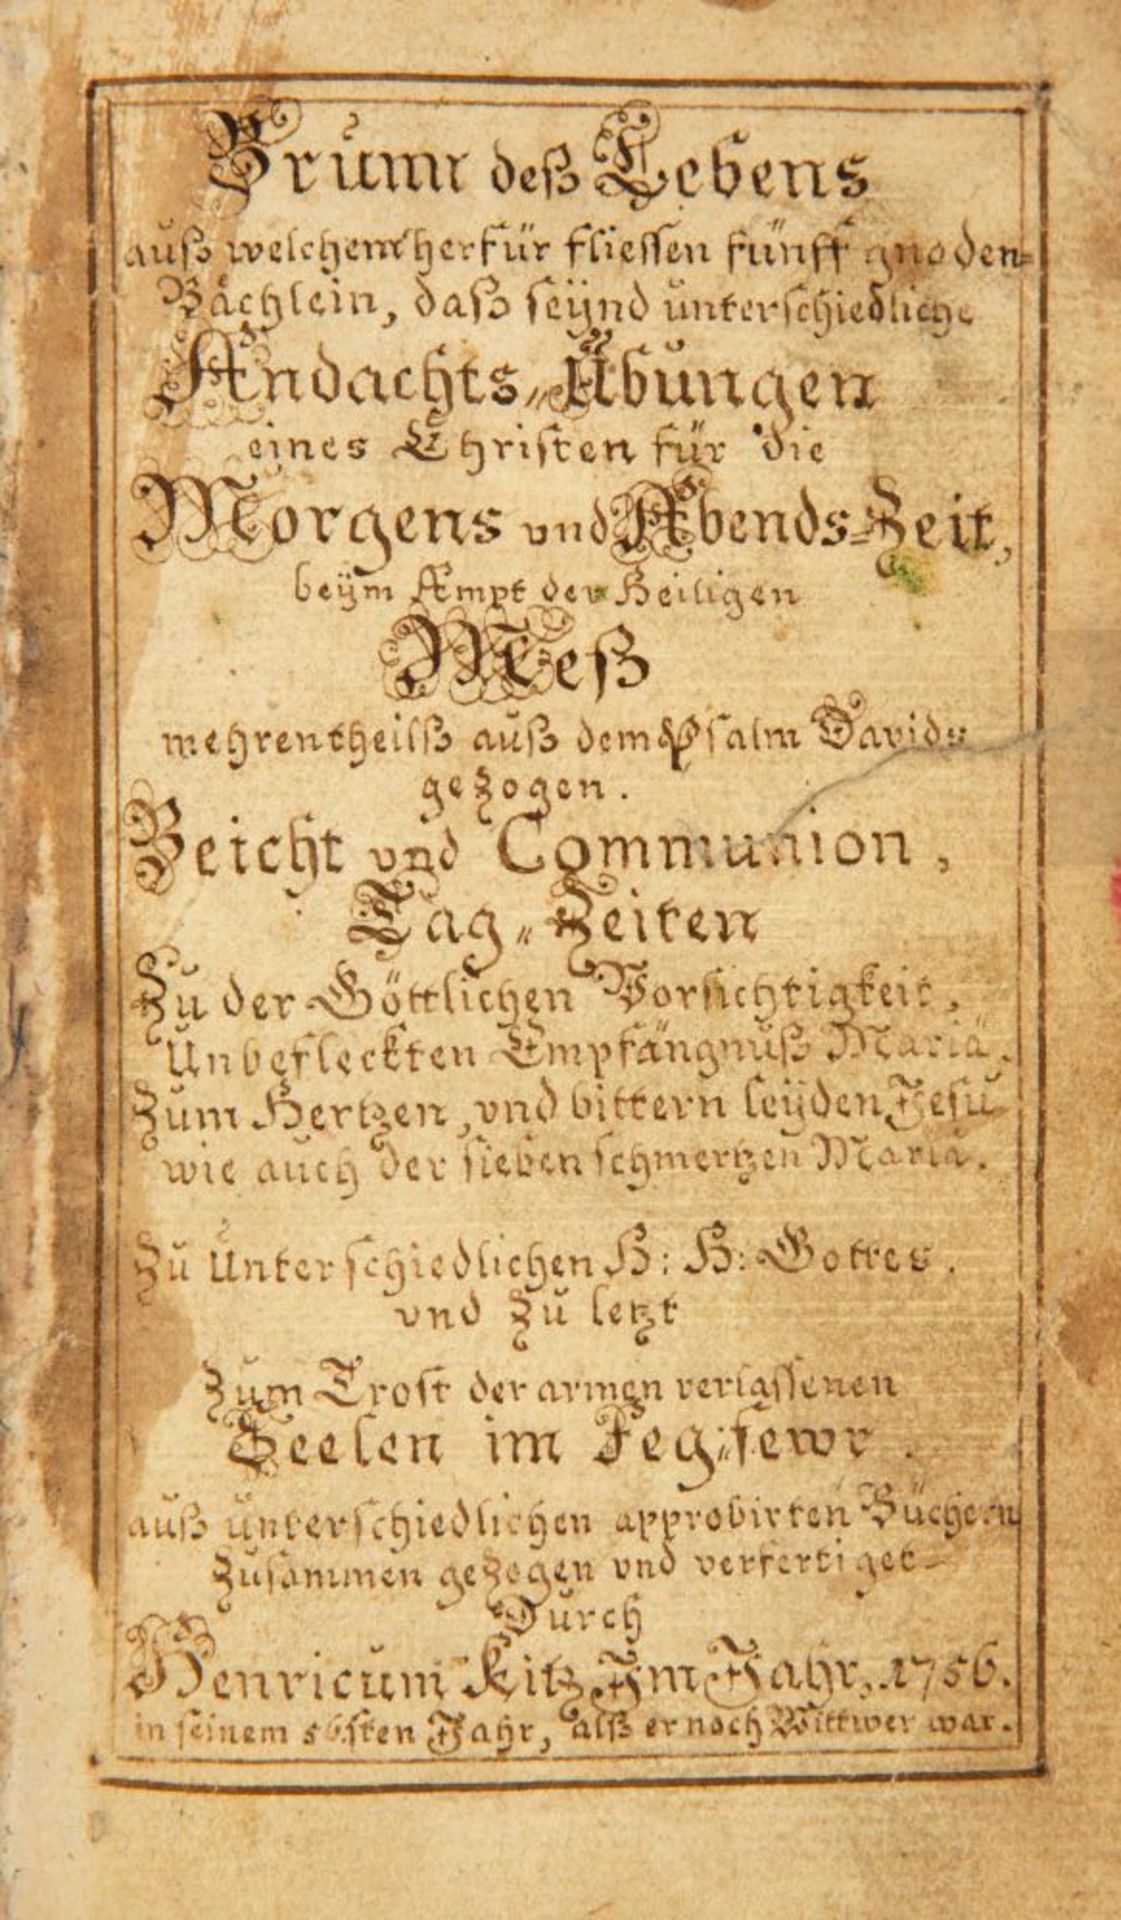 Brunn deß Lebens
auß welchem herfür fliessen fünff gnaden=
Bächlein, daß seÿnd unterschiedliche
Andachts„Übungen
eines Christen für die
Morgens vnd Abends=Zeit,
beÿm Ampt der Heiligen
Meß
mehrentheilß auß dem Psalm Davids
gezogen.
Beicht vnd Communion,
Tag„Zeiten
Zu der Göttlichen Vorsichtigkeit,
Unbefleckten Empfängnuß Mariä.
Zum Hertzen, vnd bittern leÿden Jesu
wie auch der sieben schmertzen Mariä.
Zu Unterschiedlichen H: H: Gottes.
vnd Zu letzt
Zum Trost der armen verlassenen
Seelen im Feg„fewr.
auß unterschiedlichen approbirten Büchern
Zusammen gezogen vnd verfertiget
Durch
Henricum Kitz Im Jahr, 1756.
in seinem 56sten Jahr, alß er noch Wittwer war.